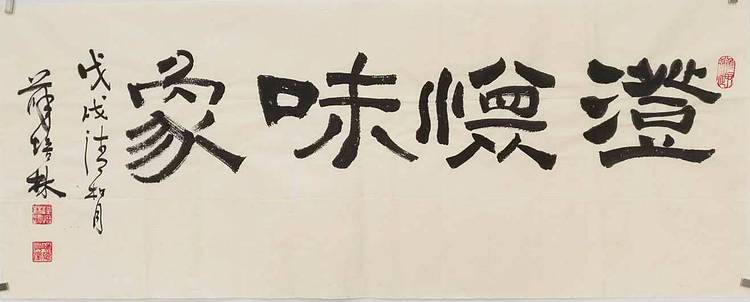 澄懷味象
戊戌清和月
薛培林